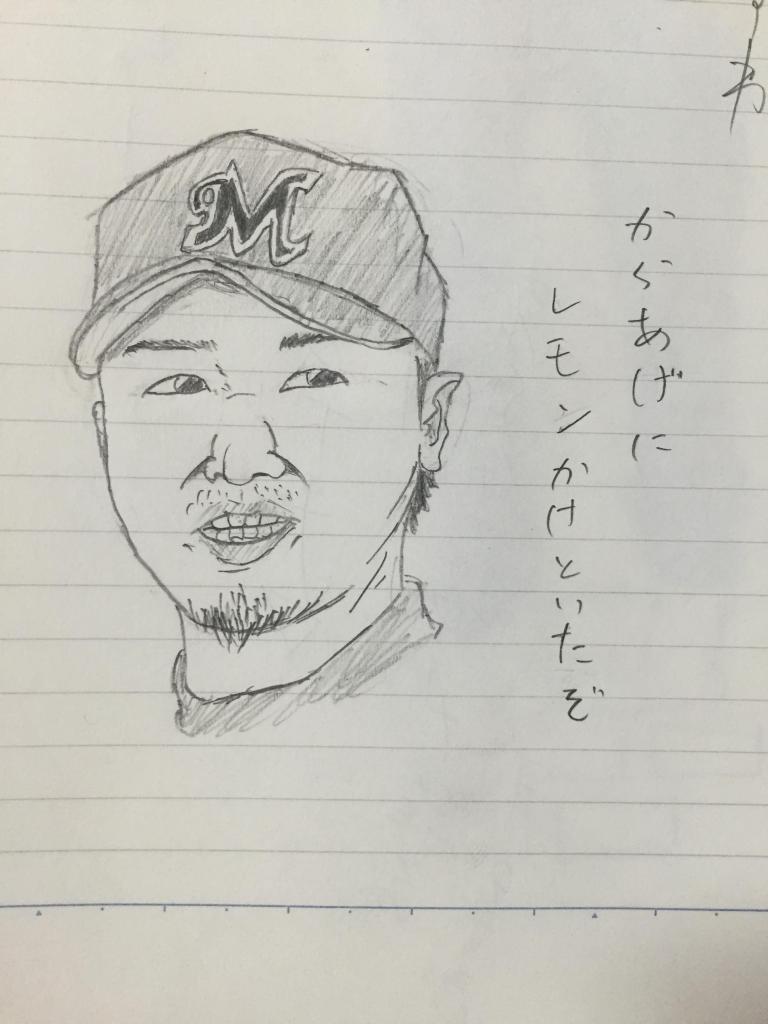 からあげに
レモンかけといたぞ
M
わ